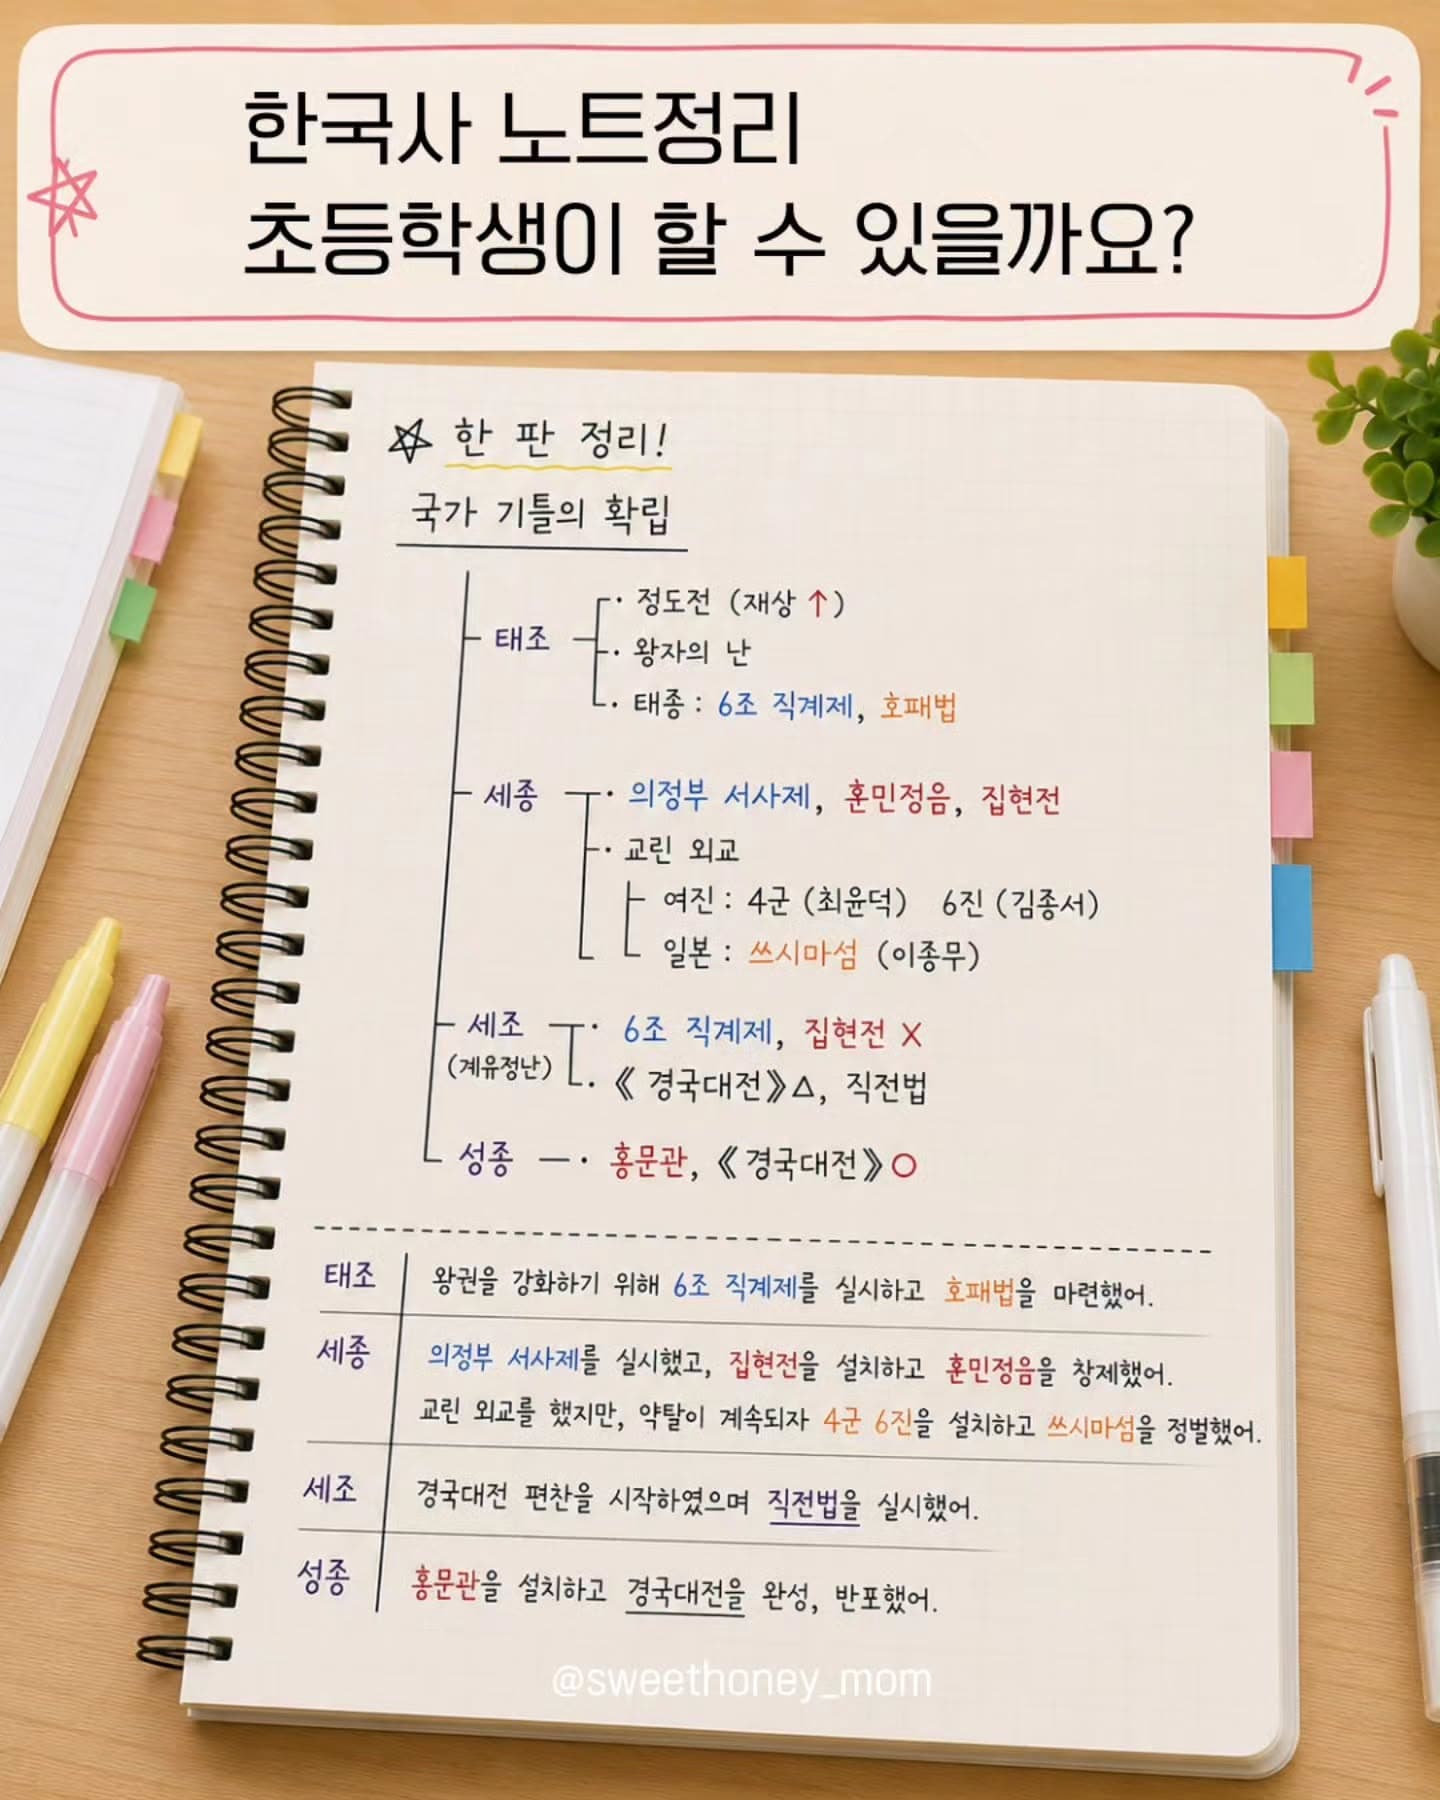 한국사 노트정리
초등학생이 할 수 있을까요?
한 판 정리!
국가 기틀의 확립
태조
· 정도전 (재상 ↑)
· 왕자의 난
· 태종 : 6조 직계제, 호패법
세종 · 의정부 서사제, 훈민정음, 집현전
· 교린 외교
여진 : 4군 (최윤덕) 6진 (김종서)
일본 : 쓰시마섬 (이종무)
세조 · 6조 직계제, 집현전 X
(계유정난) · 《경국대전》△, 직전법
성종 · 홍문관, 《경국대전》○
태조 왕권을 강화하기 위해 6조 직계제를 실시하고 호패법을 마련했어.
세종 의정부 서사제를 실시했고, 집현전을 설치하고 훈민정음을 창제했어.
교린 외교를 했지만, 약탈이 계속되자 4군 6진을 설치하고 쓰시마섬을 정벌했어.
세조 경국대전 편찬을 시작하였으며 직전법을 실시했어.
성종 홍문관을 설치하고 경국대전을 완성, 반포했어.
@sweethoney_mom